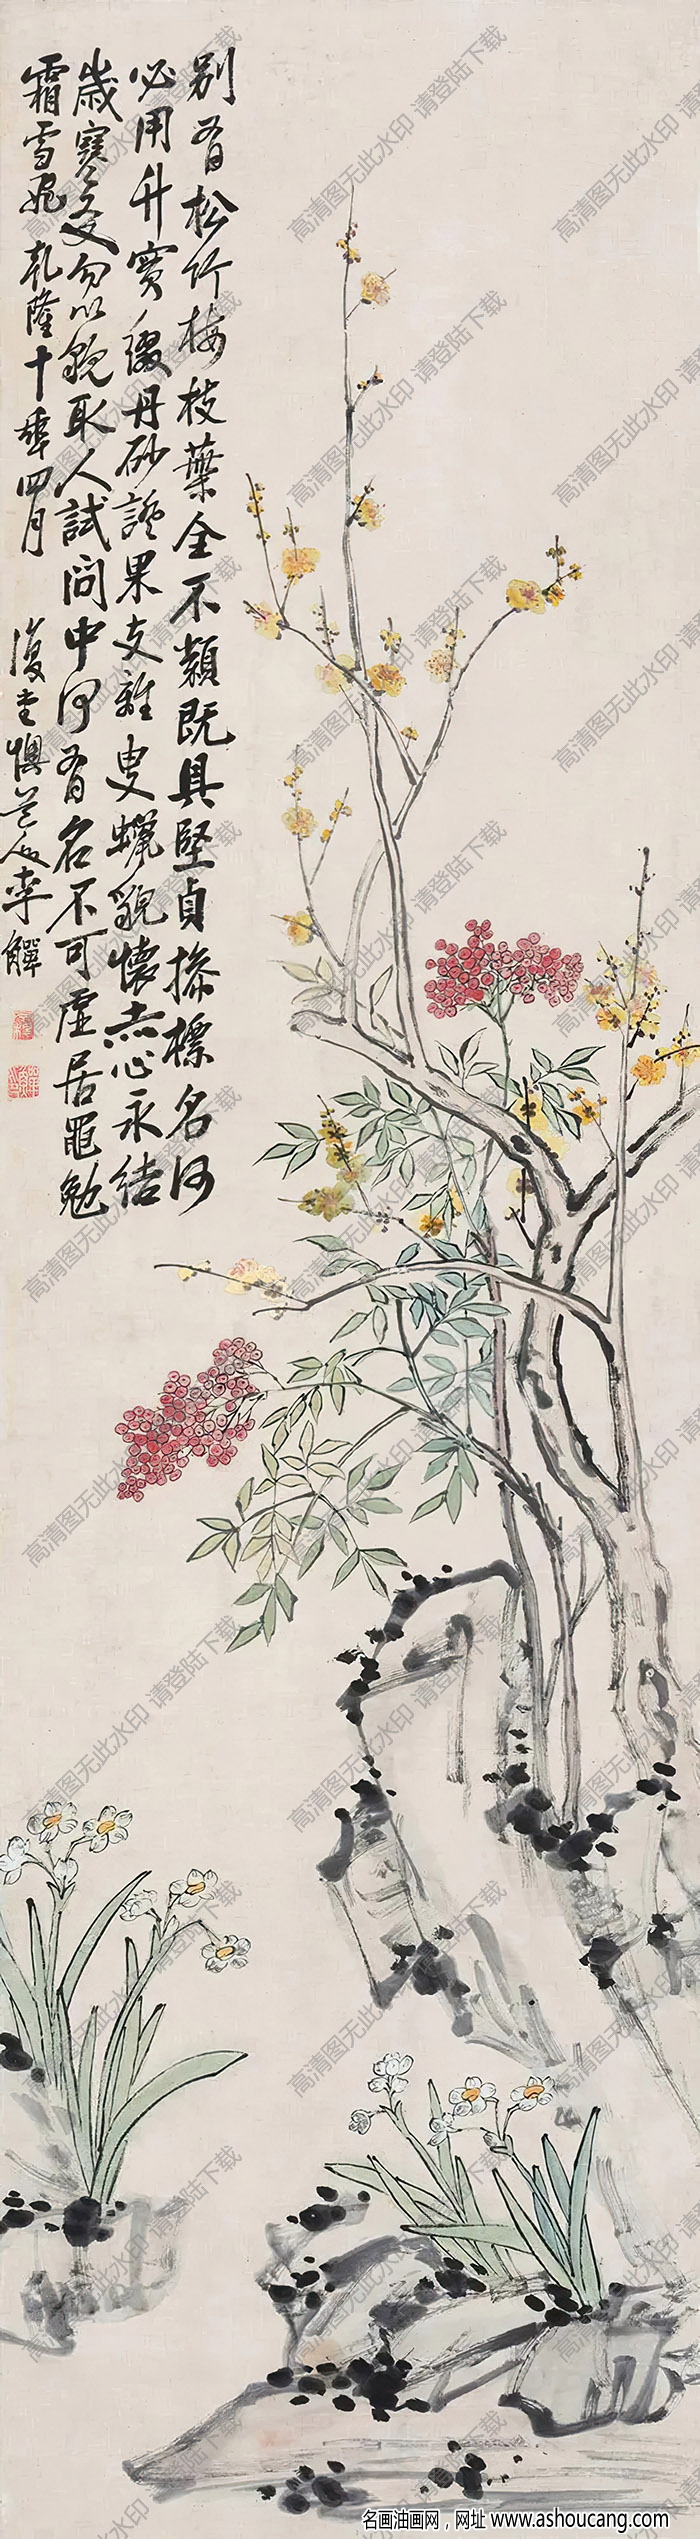 别有松竹梅枝葉全不類既具堅貞操標名何
必用升實綴丹砂讒果支離叟蠟貌懷赤心永結
歲寒交勿以貌取人試問中何有名不可虛居黽勉
霜雪児乾隆十年四月
復堂懊道人李鱓
高清图无此水印 请登陆下载
名画油画网，网址 www.ashoucang.com